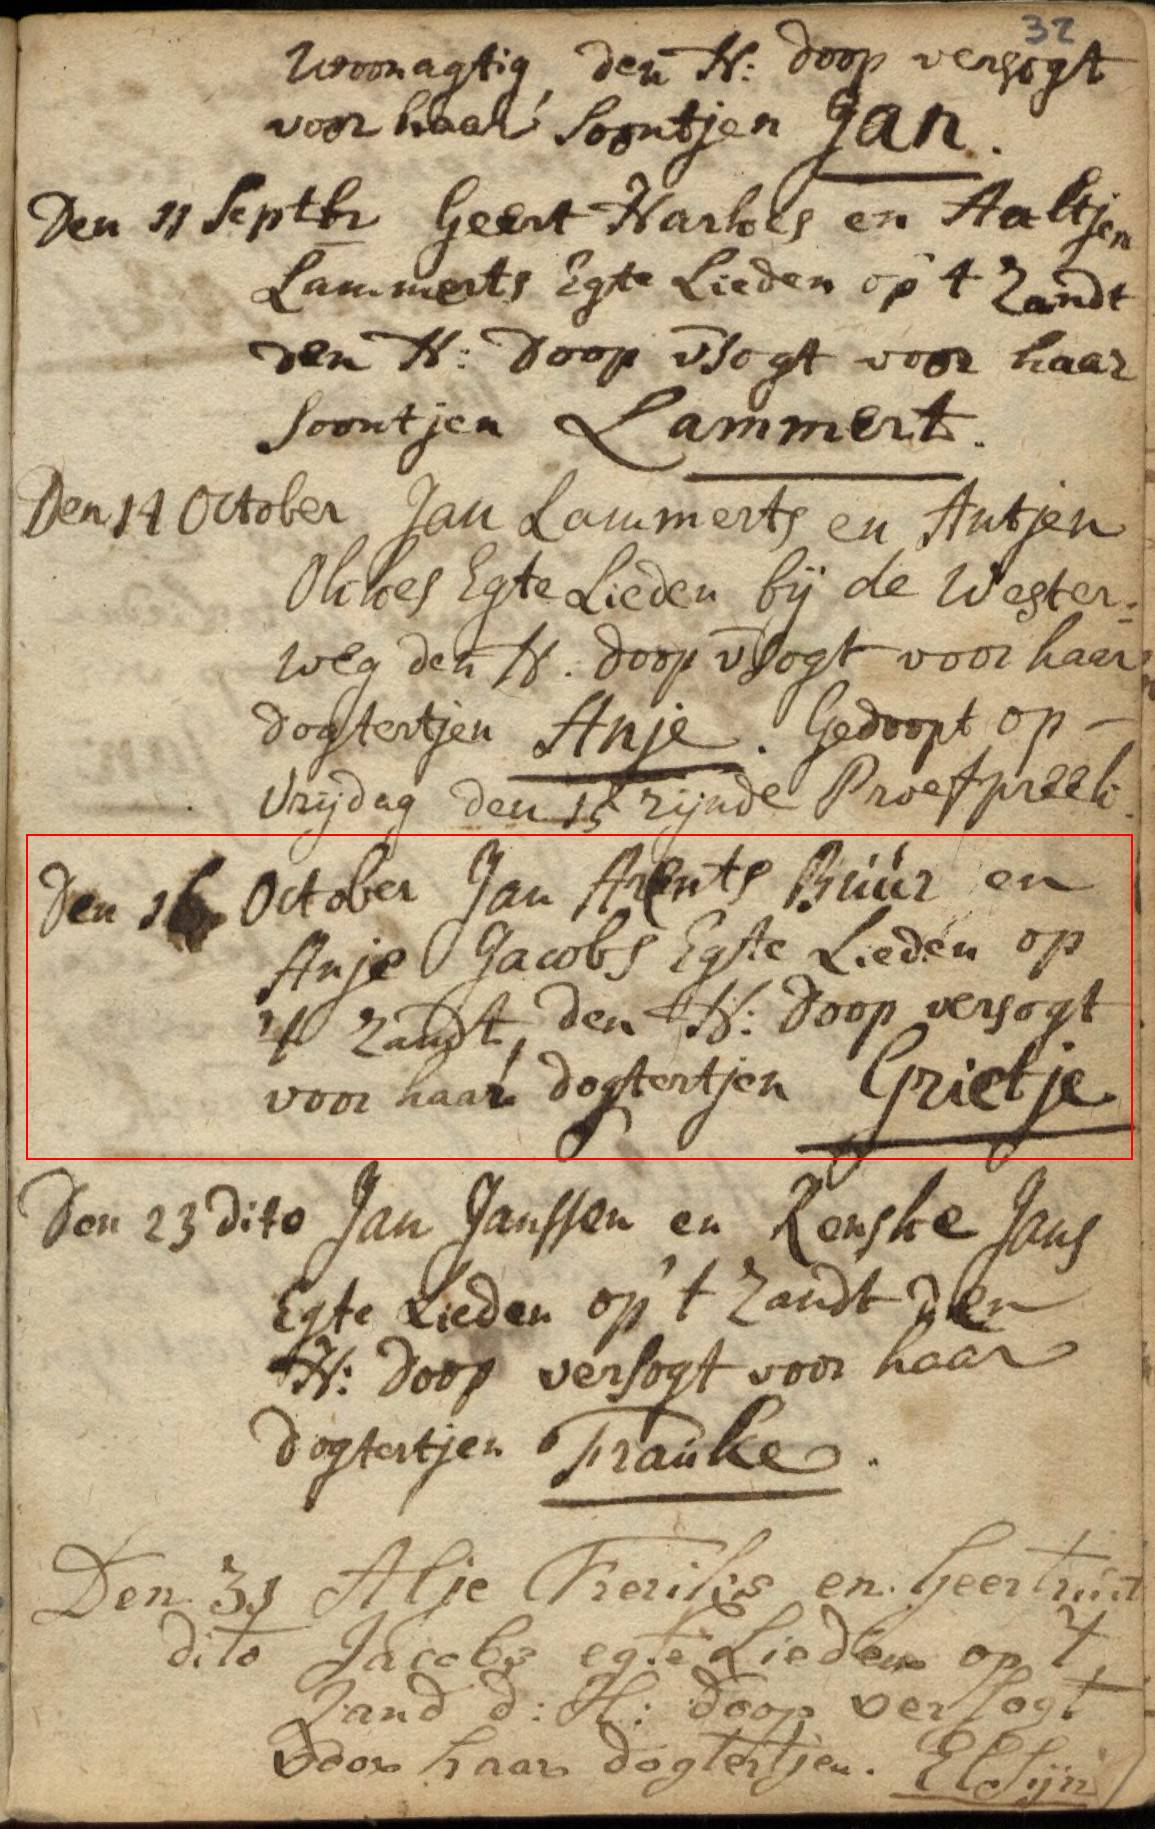 32
woonagtig, den H: doop versogt
voor haar Soontjen Jan.
Den 11 Septbr Geert Harkes en Aaltjen
Lammerts Egte Lieden op 't Zandt
den H: Doop v̄sogt voor haar
Soontjen Lammert.
Den 14 October Jan Lammerts en Antjen
Okkes Egte Lieden bij de Wester-
weg den H. doop v̄sogt voor haar
dogtertjen Anje. Gedoopt op
Vrijdag den 15 zijnde Proefpreek.
Den 16 October Jan Arents Buür en
Anje Jacobs Egte Lieden op
't Zandt, den H: Doop versogt
voor haar dogtertjen Grietje.
Den 23 dito Jan Janssen en Renske Jans
Egte Lieden op 't Zandt den
H: Doop versogt voor haar
dogtertjen Frauke.
Den 31 Alje Freriks en Geertruit
dito Jacobs egte Lieden op 't
Zand d: H: doop versogt
voor haar dogtertjen. Elsijn